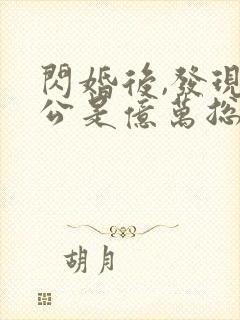 閃婚後,發現
公是億萬總
胡月